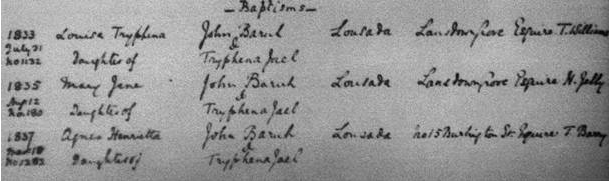 Baptisms
1833 Louisa Tryphena John Baruch Lousada Lansdown Grove Esquire T. Williams
July 31 &
No 1132 Daughter of Tryphena Jael
1835 Mary Jane John Baruch Lousada Lansdown Grove Esquire H. Jelly
Aug 12 &
No 180 Daughter of Tryphena Jael
1837 Agnes Henrietta John Baruch Lousada No 15 Burlington St. Esquire T. Barry
18 &
Daughter of Tryphena Jael